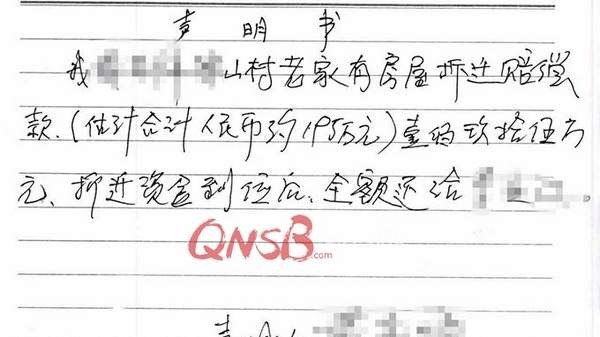 声明书
我 山村老家有房屋拆迁赔偿
款.(估计合计人民币约195万元)壹百玖拾伍万
元、拆迁资金到位后、全额还给
QNSB.com
声明人